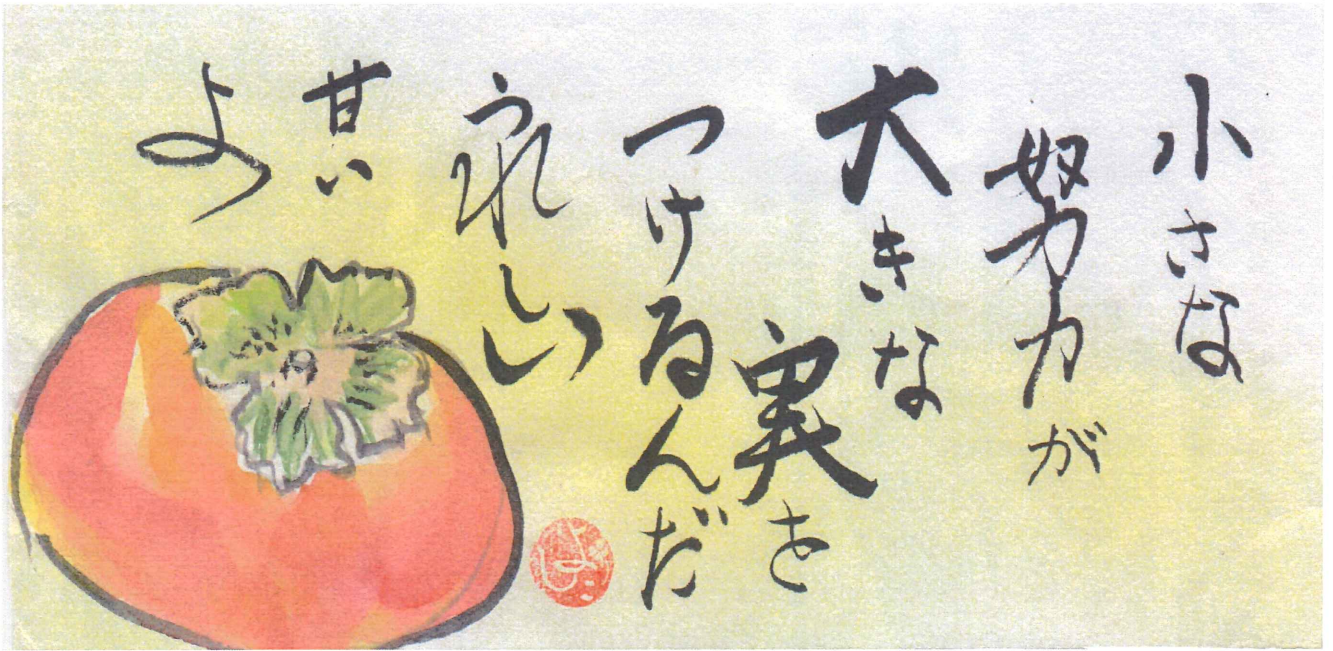 小さな
努力が
大きな
実を
つけるんだ
うれしい
甘い
よ